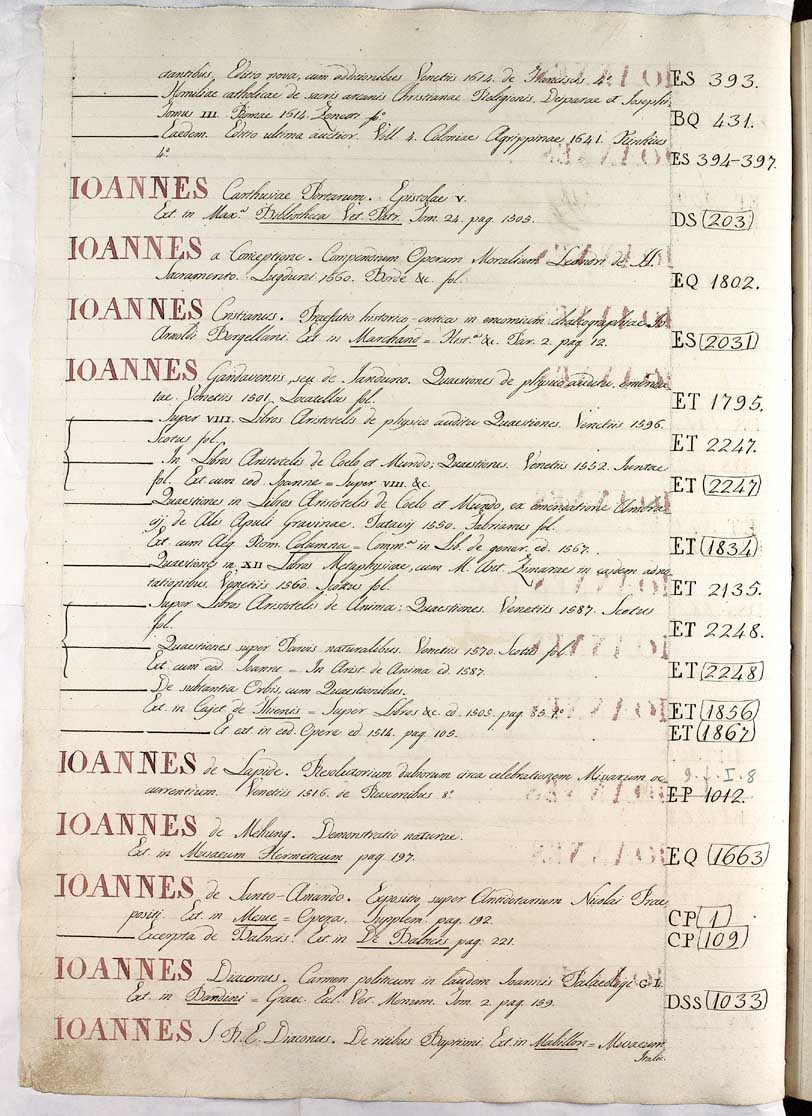 ctantibus, Editio nova, cum additionibus Venetiis 1614. de Franciscis 4.° ES 393.
——— Homiliae catholicae de sacris arcanis Christianae Religionis, Deiparae et Josephi
Tomus III. Romae 1614. Zenetti f.° BQ 431.
——— Eaedem. Editio ultima auctior. Voll 4. Coloniae Agrippinae 1641.
4.° ES 394-397.
IOANNES Carthusiae Portarum. Epistolae V.
Ext. in Max.ª Bibliotheca Vet. Patr. Tom. 24. pag. 1505. DS 203
IOANNES a Conceptione. Compendium Operum Moralium Leandri de SS.
Sacramento. Lugduni 1660. Borde &c. fol. EQ 1802.
IOANNES Cristianus. Praefatio historico-critica in encomium chalcographiae
Arnoldi Bergellani. Ext. in Marchand = Hist.ª &c. Par. 2. pag. 12. ES 2031
IOANNES Gandavensis, seu de Janduno. Quaestiones de physico auditu, emenda
tae. Venetiis 1501. Locatellus fol. ET 1795.
——— Super VIII. Libros Aristotelis de physico auditu Quaestiones. Venetiis 1596.
Scotus fol. ET 2247.
——— In Libros Aristotelis de Coelo et Mundo; Quaestiones. Venetiis 1552. Iuntae
fol. Ext. cum eod. Joanne = Super VIII. &c. ET 2247
——— Quaestiones in Libros Aristotelis de Coelo et Mundo, ex emendatione Ambro
sij de Alis Apuli Gravinae. Patavij 1550. Fabrianus fol.
Ext. cum Aeg. Rom. Columna = Comm.ª in Lib. de gener. ed. 1567. ET 1834
——— Quaestiones in XII Libros Metaphysicae, cum M. Ant. Zimarae in easdem adno
tationibus. Venetiis 1560. Scotus fol. ET 2135.
——— Super Libros Aristotelis de Anima; Quaestiones. Venetiis 1587. Scotus
fol. ET 2248.
——— Quaestiones super Parvis naturalibus. Venetiis 1570. Scotus fol.
Ext. cum eod. Joanne = In Arist. de Anima ed. 1587. ET 2248
——— De substantia Orbis, cum Quaestionibus.
Ext. in Cajet. de Thienis = Super Libros &c. ed. 1505. pag. 85. t.° ET 1856
——— Et ext. in eod. Opere ed 1514. pag. 105. ET 1867
IOANNES de Lapide. Resolutorium dubiorum circa celebrationem Missarum oc 6.I.8
currentium. Venetiis 1516. de Rusconibus 8.° EP 1012.
IOANNES de Mehung. Demonstratio naturae.
Ext. in Musaeum Hermeticum pag. 197. EQ 1663
IOANNES de Santo-Amando. Expositio super Antidotarium Nicolai Prae
positi. Ext. in Mesue = Opera. Supplem pag. 192. CP 1
——— Excerpta de Balneis. Ext. in De Balneis pag. 221. CP 109
IOANNES Diaconus. Carmen politicum in laudem Ioannis Palaeologi
Ext. in Bandini = Graec. Eccl. Vet. Monum. Tom. 2. pag. 159. DSS 1033
IOANNES S. R. E. Diaconus. De ritibus Baptismi. Ext. in Mabillon = Musaeum
Italic.